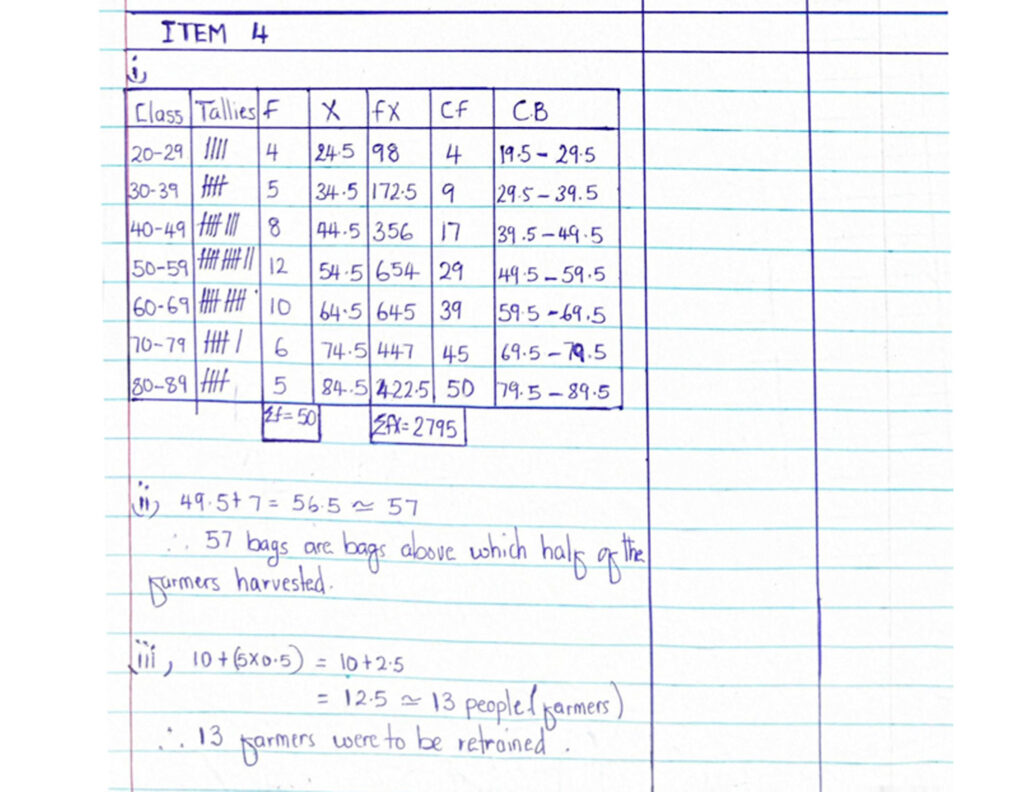 ITEM 4
i,
Class Tallies F X fX Cf C.B
20-29 |||| 4 24.5 98 4 19.5 - 29.5
30-39 ̶|̶|̶|̶|̶ 5 34.5 172.5 9 29.5 - 39.5
40-49 ̶|̶|̶|̶|̶ ||| 8 44.5 356 17 39.5 - 49.5
50-59 ̶|̶|̶|̶|̶ ̶|̶|̶|̶|̶ || 12 54.5 654 29 49.5 - 59.5
60-69 ̶|̶|̶|̶|̶ ̶|̶|̶|̶|̶ 10 64.5 645 39 59.5 - 69.5
70-79 ̶|̶|̶|̶|̶ | 6 74.5 447 45 69.5 - 79.5
80-89 ̶|̶|̶|̶|̶ 5 84.5 422.5 50 79.5 - 89.5
Σf = 50 Σfx = 2795
ii, 49.5 + 7 = 56.5 ≃ 57
∴ 57 bags are bags above which half of the
farmers harvested.
iii, 10 + (5x0.5) = 10 + 2.5
= 12.5 ≃ 13 people (farmers)
∴ 13 farmers were to be retrained.